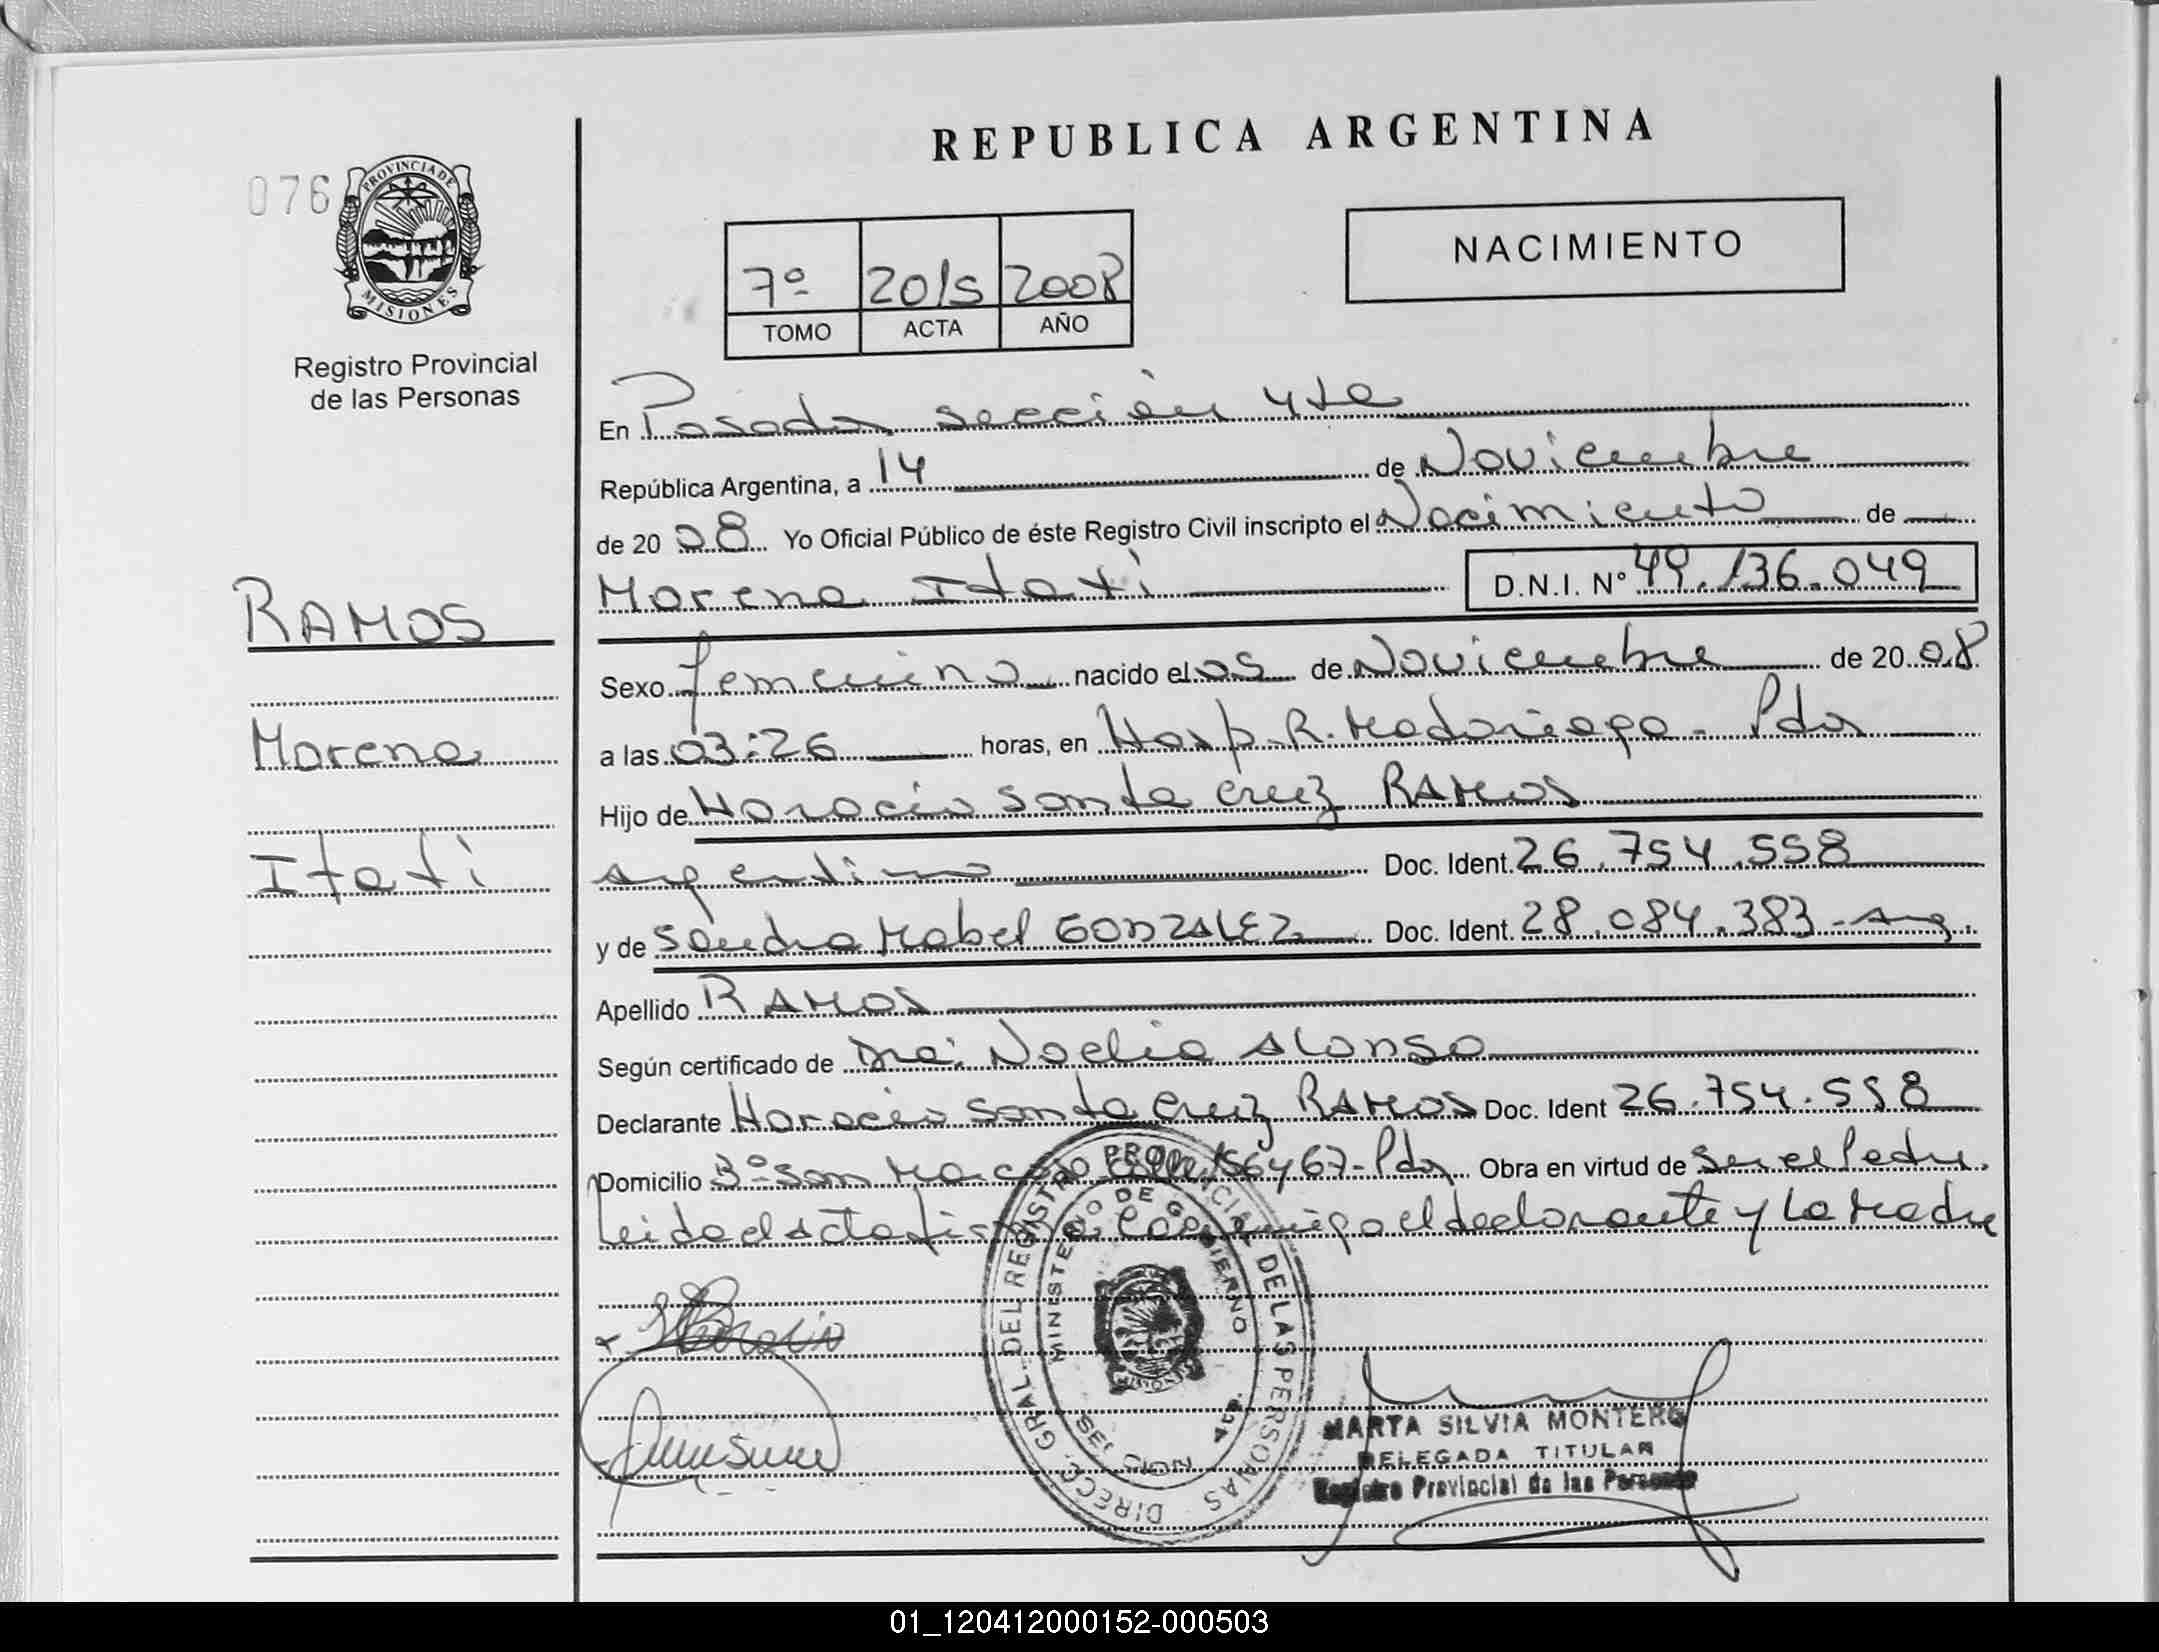 REPUBLICA ARGENTINA
076
PROVINCIA DE MISIONES
Registro Provincial
de las Personas
7º 2015 2008
TOMO ACTA AÑO
NACIMIENTO
RAMOS
Morena
Itatí
En Posadas sección 4ta
República Argentina, a 14 de Noviembre
de 2008 Yo Oficial Público de éste Registro Civil inscripto el Nacimiento de
Morena Itatí D.N.I. Nº 49.136.049
Sexo femenino nacido el 05 de Noviembre de 2008
a las 03:26 horas, en Hosp. R. Madariaga - Pdas
Hijo de Horacio Santa Cruz RAMOS
argentino Doc. Ident. 26.754.558
y de Sandra Mabel GONZALEZ Doc. Ident. 28.084.383 - Arg.
Apellido RAMOS
Según certificado de Dra: Noelia Alonso
Declarante Horacio Santa Cruz RAMOS Doc. Ident 26.754.558
Domicilio 3º San Marcos 6467 - Pdas Obra en virtud de Ser el Padre.
Leida el acta firma Conmigo el declarante y La Madre
DIRECC. GRAL. DEL REGISTRO PROVINCIAL DE LAS PERSONAS
MINISTERIO DE GOBIERNO
SECCION 4ta.
MISIONES
Horacio
MARTA SILVIA MONTERO
DELEGADA TITULAR
Registro Provincial de las Personas
01_120412000152-000503